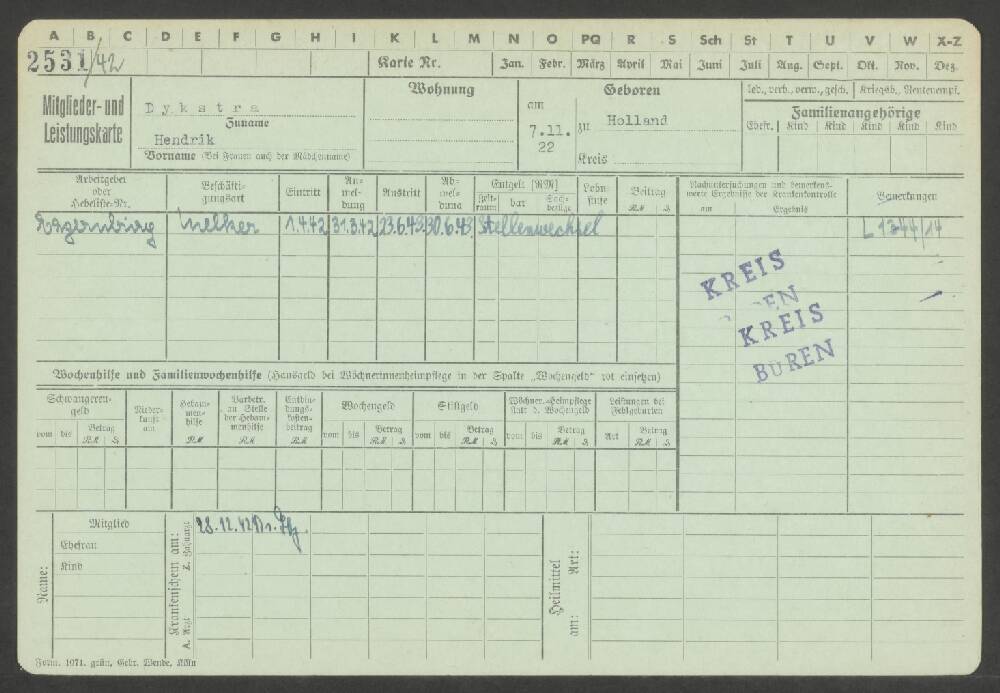 A B C D E F G H I K L M N O PQ R S Sch St T U V W X-Z
2531/42 Karte Nr. Jan. Febr. März April Mai Juni Juli Aug. Sept. Okt. Nov. Dez.
Mitglieder- und
Leistungskarte
Dykstra
Zuname
Hendrik
Vorname (Bei Frauen auch der Mädchenname)
Wohnung
Geboren
am
7.11.
22
zu Holland
Kreis
led., verh., verw., gesch. Kriegsb., Rentenempf.
Familienangehörige
Ehefr. Kind Kind Kind Kind Kind
Arbeitgeber
oder
Hebeliste-Nr.
Beschäfti-
gungsart
Eintritt
An-
mel-
dung
Austritt
Ab-
mel-
dung
Entgelt [RM]
Zeit-
raum
bar
Sach-
bezüge
Lohn-
stufe
Beitrag
RM
Nachuntersuchungen und bemerkens-
werte Ergebnisse der Krankenkontrolle
am Ergebnis
Bemerkungen
Melker 1.4.42 31.3.42 23.6.43 30.6.43 Stellenwechsel
KREIS
EN
KREIS
BUREN
Wochenhilfe und Familienwochenhilfe (Hausgeld bei Wöchnerinnenheimpflege in der Spalte „Wochengeld“ rot einsetzen)
Schwangeren-
geld
vom bis Betrag
RM
Nieder-
kunft
am
Hebam-
men-
hilfe
RM
Barbetr.
an Stelle
der Hebam-
menhilfe
RM
Entbin-
dungs-
kosten-
beitrag
RM
Wochengeld
vom bis Betrag
RM
Stillgeld
vom bis Betrag
RM
Wöchner.-Heimpflege
statt d. Wochengeld
vom bis Betrag
RM
Leistungen bei
Fehlgeburten
Art Betrag
RM
Name:
Mitglied
Ehefrau
Kind
Krankenschein am:
A. Arzt Z. Zahnarzt
28.12.42
Heilmittel
am: Art:
Form. 1071. grün, Gebr. Wende, Köln